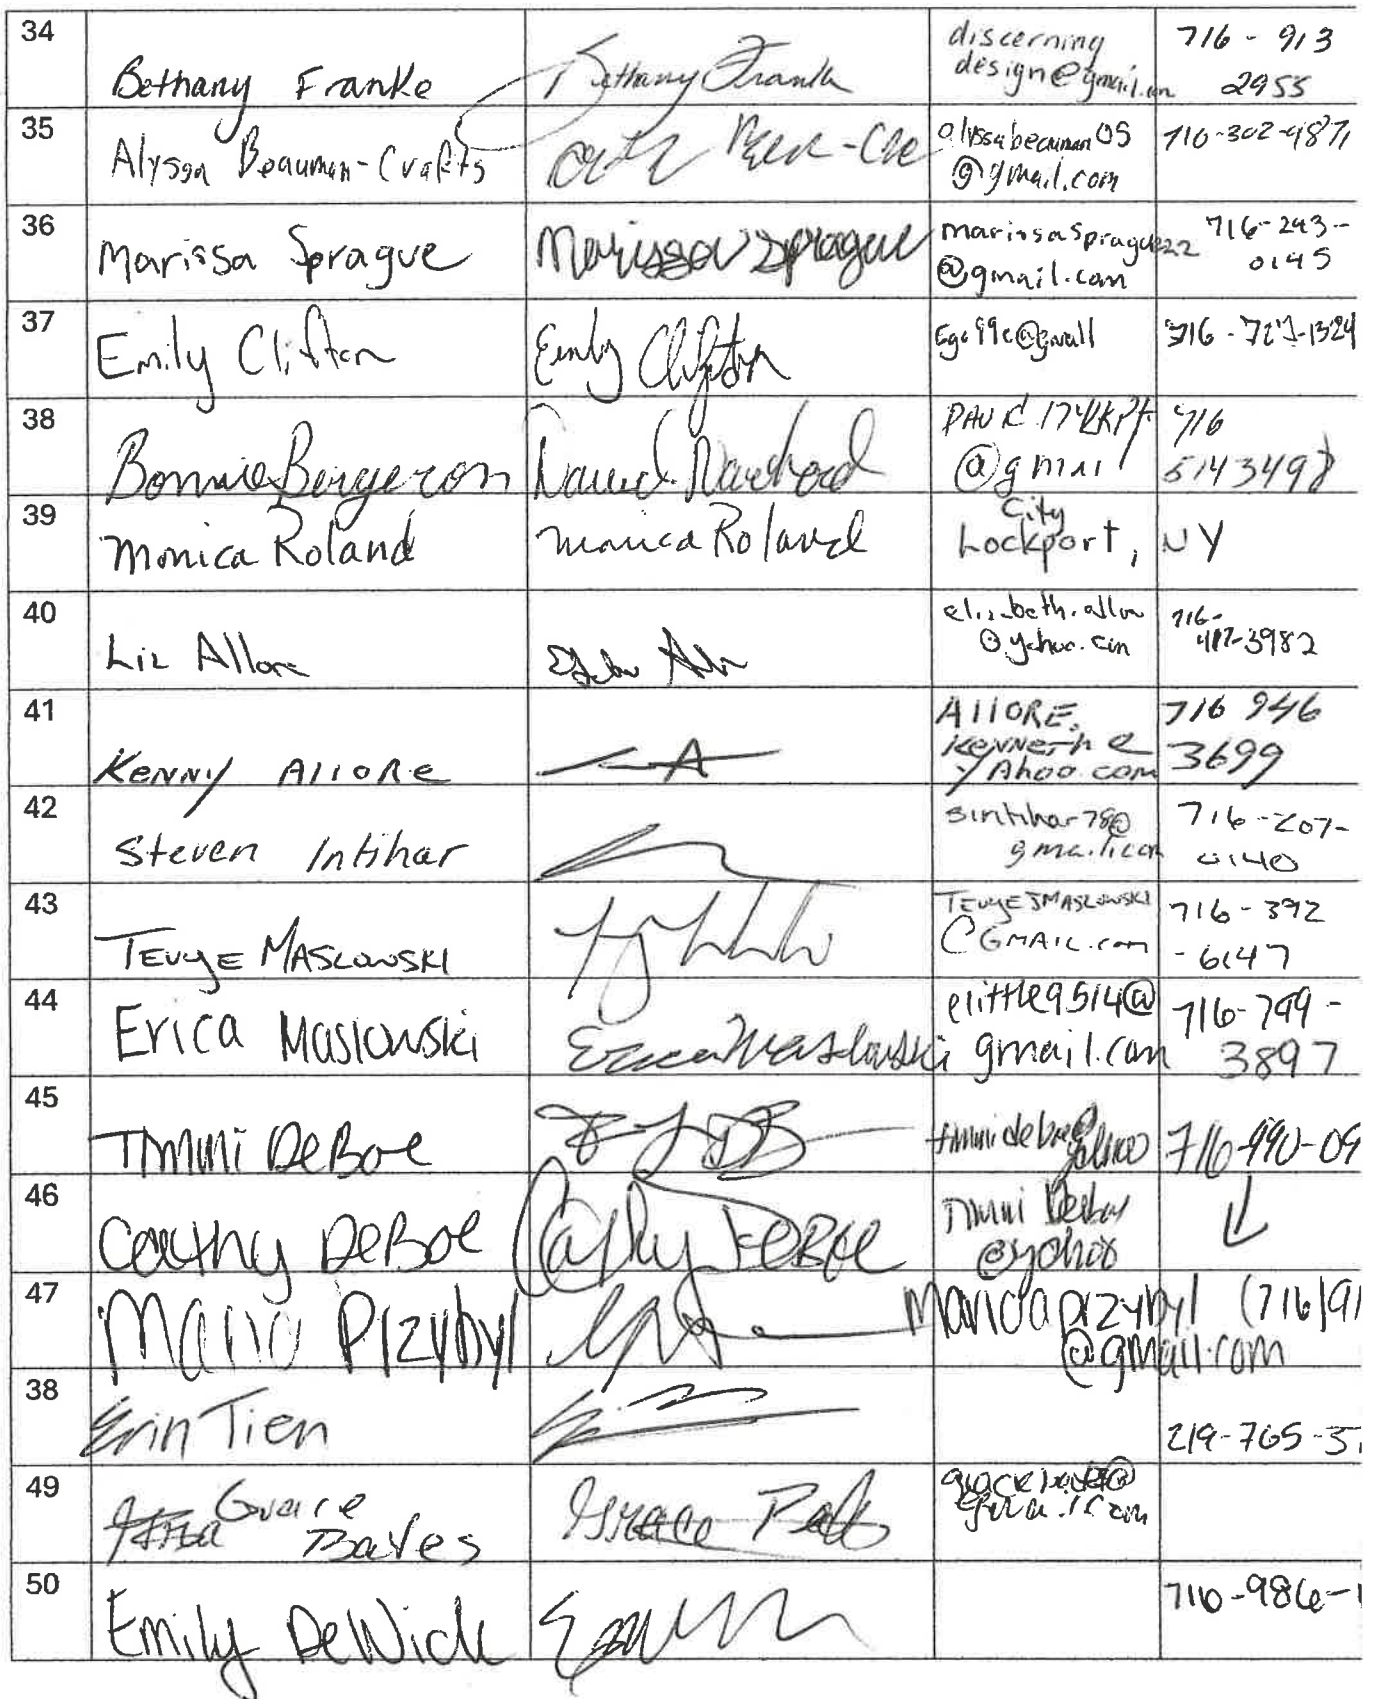 34
Bethany Franke
Bethany Frank
discerning
design@gmail.com
716 - 913
2955
35
Alyssa Beauman-Crafts
alyssabeauman05
@gmail.com
716-302-4871
36
Marissa Sprague
Marissa Sprague
marissasprague22
@gmail.com
716-243-
0145
37
Emily Clifton
Emily Clifton
716-727-1324
38
Bonnie Bergeron
@gmail
716
5143498
39
Monica Roland
Monica Roland
City
Lockport, NY
40
Liz Allore
716-
417-3982
41
Kenny Allore
Allore.
Kenneth@
Yahoo.com
716 946
3699
42
Steven Intihar
sintihar78@
gmail.com
716-207-
0140
43
Tevye Maslowski
TevyeJMaslowski
@Gmail.com
716-392
-6147
44
Erica Maslowski
Erica Maslowski
elittle9514@
gmail.com
716-799-
3897
45
Timmi DeBoe
716-990-09
46
Cathy DeBoe
Cathy DeBoe
@yahoo
47
Przybyl
przybyl
@gmail.com
(716)91
38
Erin Tien
219-765-3
49
Grace
Bates
Grace
50
Emily DeWick
716-986-1